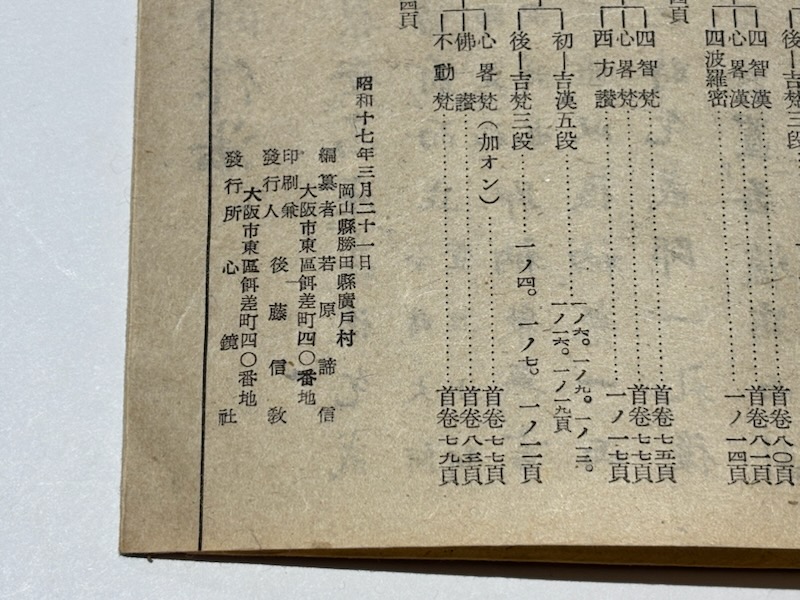 後―吉梵三段
首卷八〇頁
四智漢 首卷八一頁
心畧漢
四波羅密 一ノ一四頁
四頁
四智梵 首卷七五頁
心畧梵 首卷七七頁
西方讃 一ノ一七頁
初―吉漢五段 一ノ六。一ノ九。一ノ一三。
一ノ一六。一ノ一九頁
後―吉梵三段 一ノ四。一ノ七。一ノ一一頁
心畧梵(加オン) 首卷七七頁
佛讃 首卷八三頁
不動梵 首卷七九頁
四頁
昭和十七年三月二十一日
岡山縣勝田縣廣戸村
編纂者 若原諦信
大阪市東區餌差町四〇番地
印刷兼
發行人 後藤信敎
大阪市東區餌差町四〇番地
發行所 心鏡社